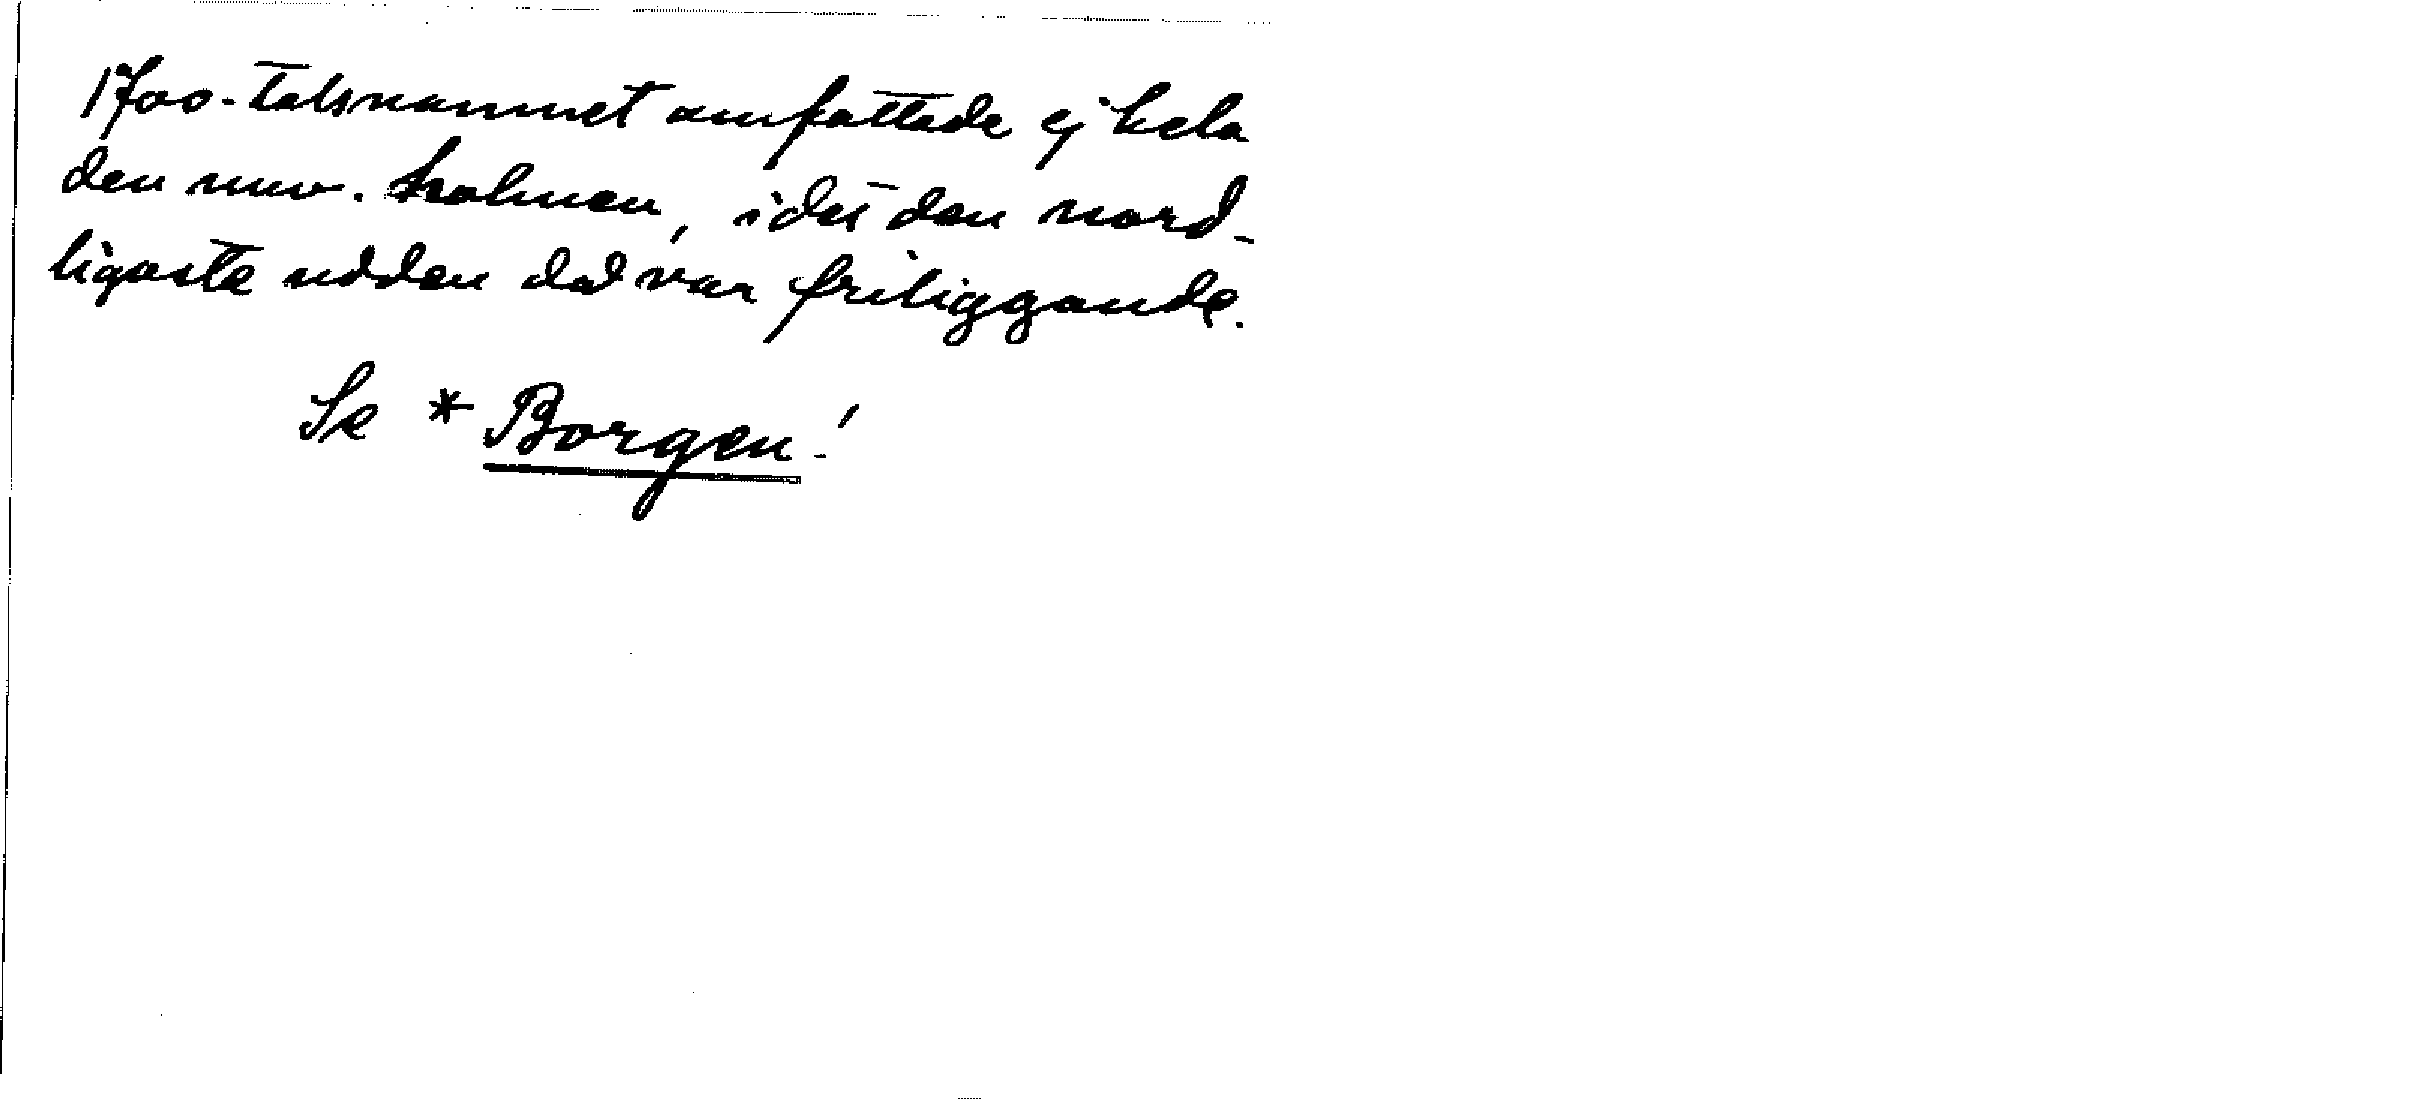 1700-talsnamnet omfattade ej hela
den nuv. holmen, idet den nord-
ligaste udden då var friliggande.
Se * Borgen!